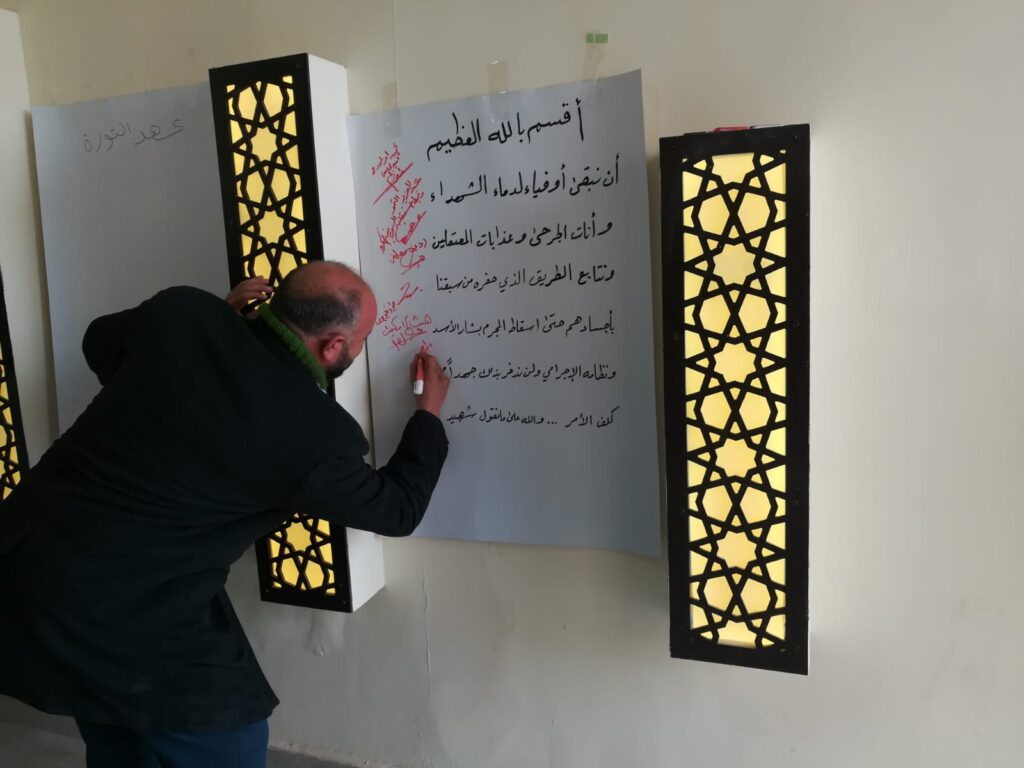 أقسم بالله العظيم
أن نبقى أوفياء لدماء الشهداء
وأنات الجرحى وعذابات المعتقلين
ونتابع الطريق الذي حفره من سبقنا
بأجسادهم حتى اسقاط المجرم بشار الأسد
ونظامه الإجرامي ولن ندخر بذلك جهداً
كلف الأمر ... والله على ما نقول شهيد
عهد الثورة